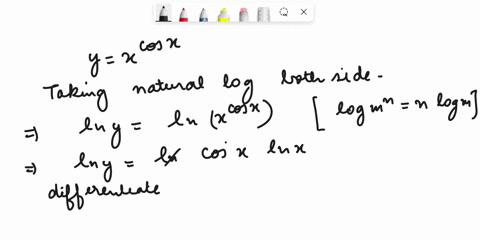 y = x^cosx
Taking natural log both side -
=> ln y = ln (x^cosx) [log m^n = n log m]
=> ln y = cos x ln x
differentiate